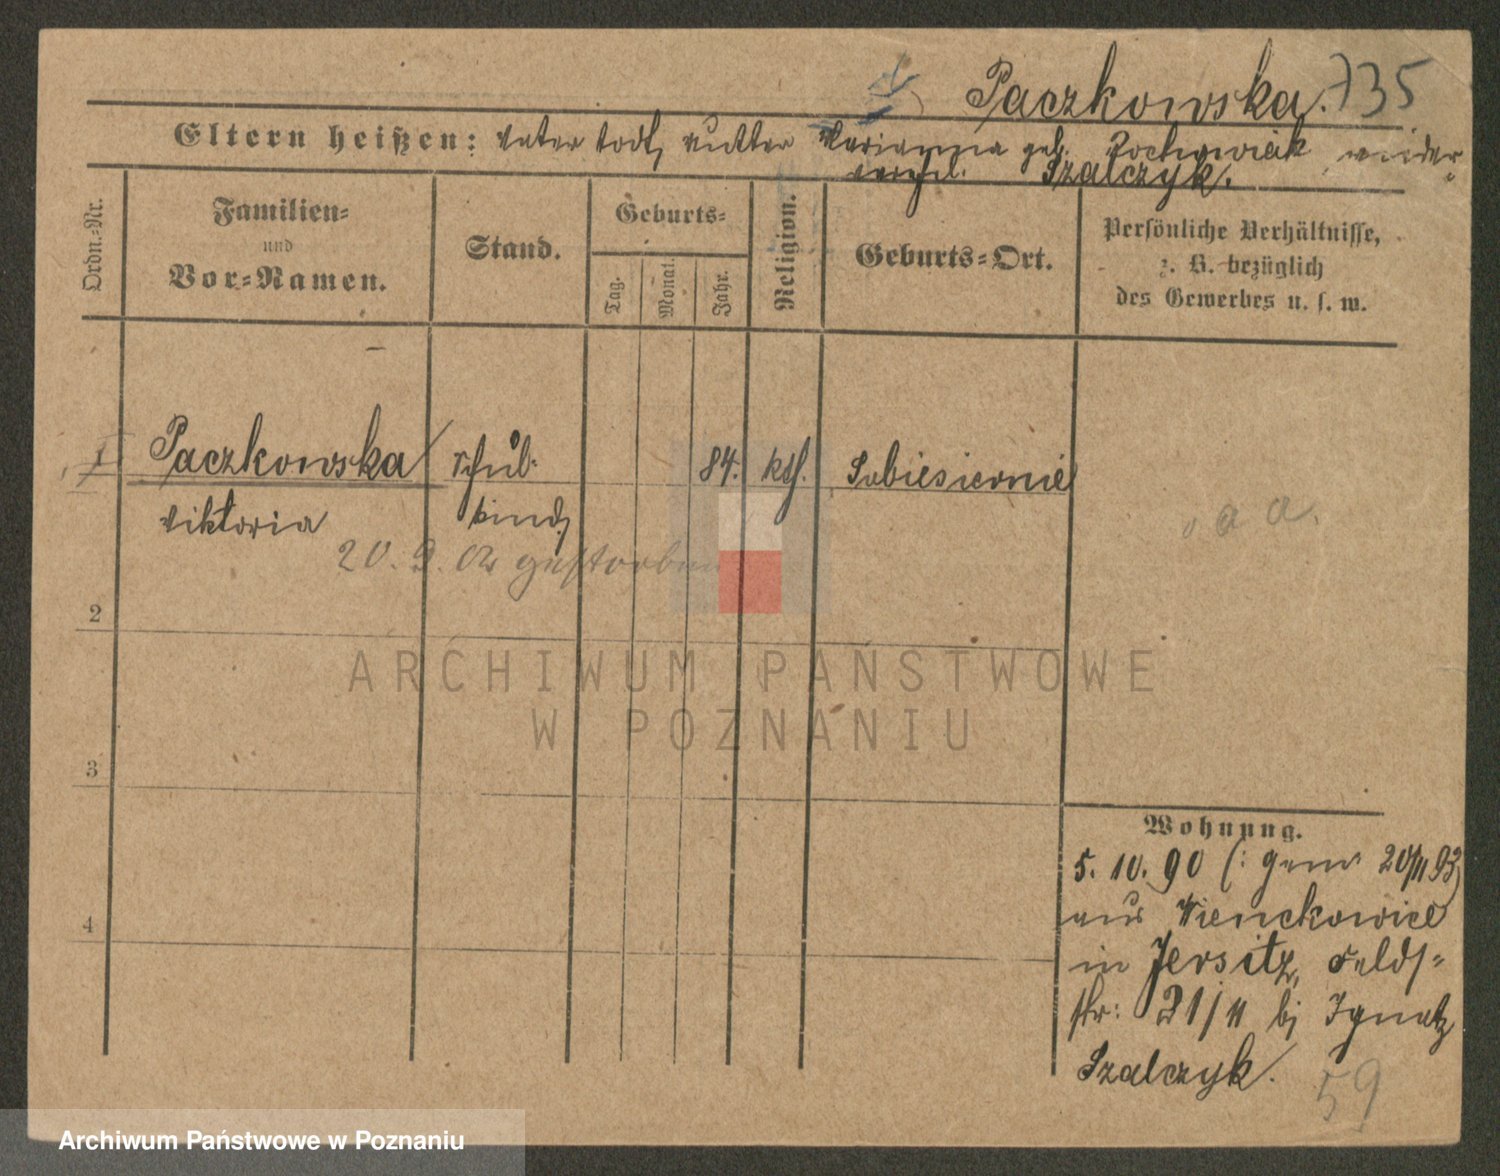 Paczkowska. 735
Eltern heißen: Vater todt, Mutter Marianna geb. Zochowiak wieder
verehel. Szalczyk.
Ordn.-Nr.
Familien-
und
Vor-Namen.
Stand.
Geburts-
Tag.
Monat.
Jahr.
Religion.
Geburts-Ort.
Persönliche Verhältnisse,
z. B. bezüglich
des Gewerbes u. s. w.
1 Paczkowska Schul- 84. kth. Sobiesiernie
Viktoria kind,
20. 9. 02 gestorben
2
3
4
Wohnung.
5. 10. 90 (: gem. 20/11 93)
aus Wienckowice
in Jersitz, Feld-
str: 21/11 bj Ignatz
Szalczyk.
59
ARCHIWUM PAŃSTWOWE
W POZNANIU
Archiwum Państwowe w Poznaniu